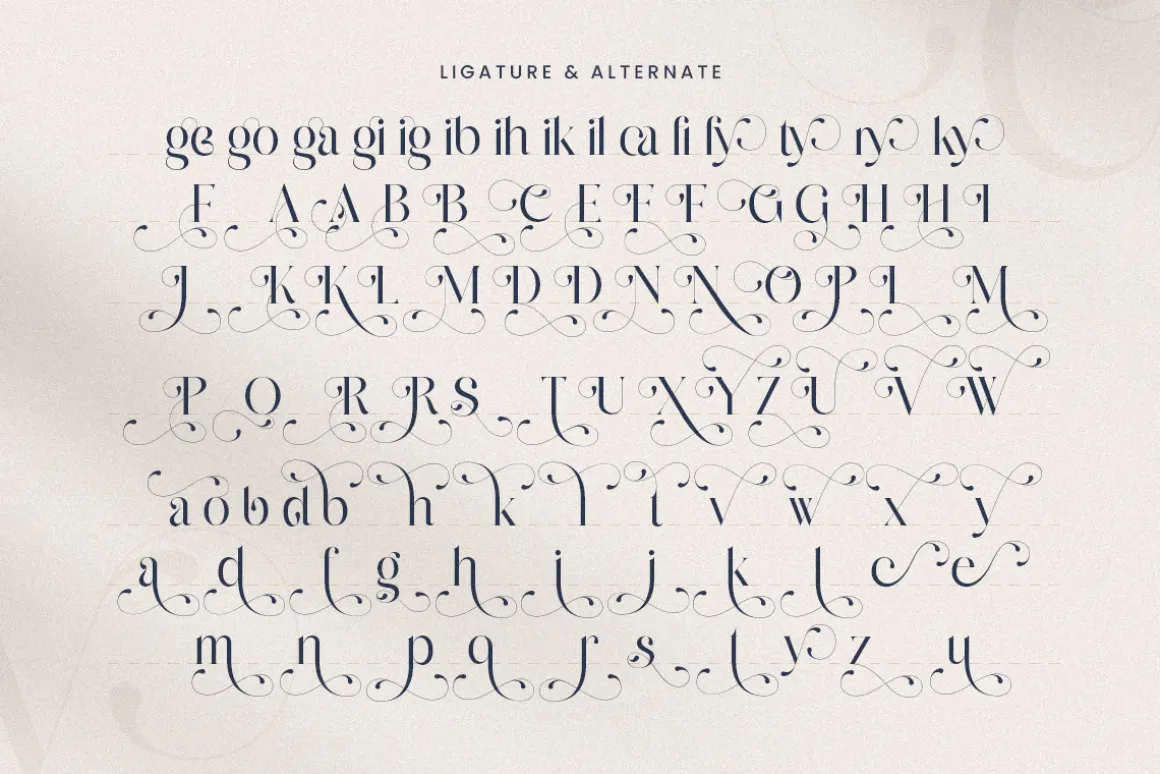 LIGATURE & ALTERNATE
ge go ga gi ig ib ih ik il ca fi fy ty ry ky
F A A B B C E F F G G H H I
J K K L M D D N N O P I M
P Q R R S T U X Y Z U V W
a o b d b h k l t v w x y
a d f g h i j k l c e
m n p q r s t y z u